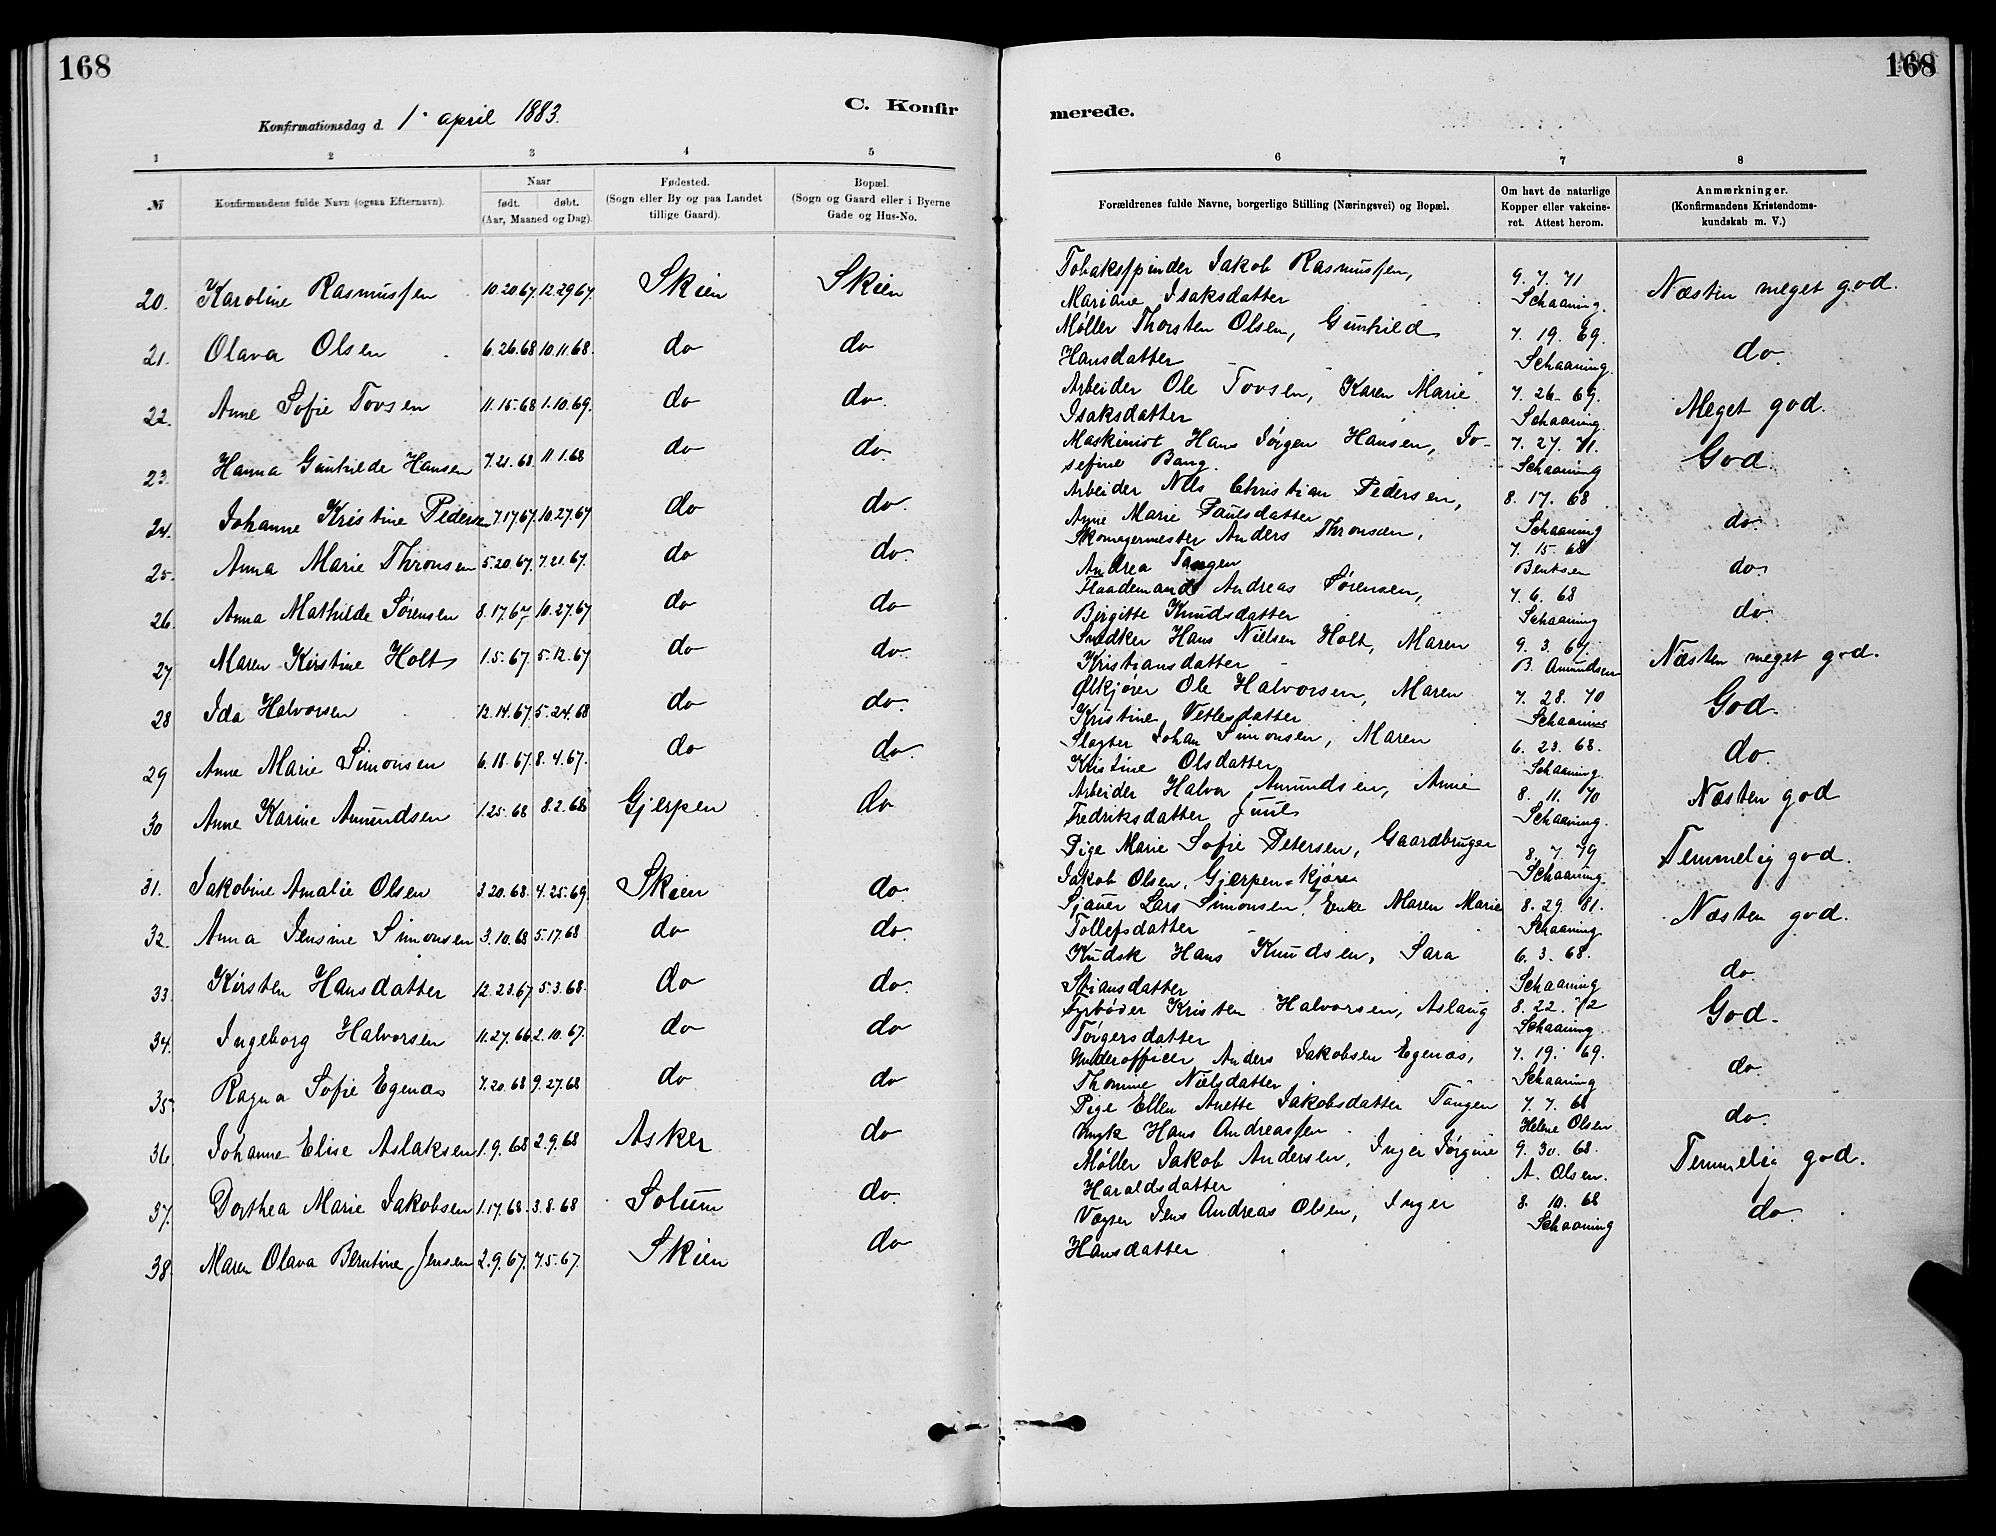 168
168
Konfirmationsdag d. 1. april 1883.
C. Konfir
merede.
1 2 3 4 5 6 7 8
№
Konfirmandens fulde Navn (ogsaa Efternavn).
Naar
født. døbt.
(Aar, Maaned og Dag).
Fødested.
(Sogn eller By og paa Landet
tillige Gaard).
Bopæl.
(Sogn og Gaard eller i Byerne
Gade og Hus-No.
Forældrenes fulde Navne, borgerlige Stilling (Næringsvei) og Bopæl.
Om havt de naturlige
Kopper eller vakcine-
ret. Attest herom.
Anmærkninger.
(Konfirmandens Kristendoms-
kundskab m. V.)
20. Karoline Rasmussen 10.20.67. 12.29.67. Skien Skien Tobakspinder Jakob Rasmussen, 9. 7. 71 Næsten meget god.
Mariane Isaksdatter Schaaning.
21. Olava Olsen 6.26.68 10.11.68. do do Møller Thorsten Olsen, Gunhild 7. 19. 69. do.
Hansdatter Schaaning.
22. Anne Sofie Tovsen 11.15.68 1.10.69. do do. Arbeider Ole Tovsen, Karen Marie 7. 26. 69. Meget god.
Isaksdatter Schaaning.
23. Hanna Gunhilde Hansen 7.21.68. 11.1.68 do do. Maskinist Hans Jørgen Hansen, Jo- 7. 27. 71. God.
sefine Bang. Schaaning
24. Johanne Kristine Pedersen 7.17.67. 10.27.67 do do. Arbeider Nils Christian Pedersen, 8. 17. 68 do.
Anne Marie Paulsdatter Schaaning
25. Anna Marie Thronsen 5.20.67. 7.21.67. do do. Skomagermester Anders Thronsen, 7. 15. 68 do.
Andrea Tangen Bentsen
26. Anna Mathilde Sørensen 8.17.67 10.27.67 do do Flaademand Andreas Sørensen, 7. 6. 68 do.
Birgitte Knudsdatter Schaaning
27. Maren Kirstine Holt 1.5.67. 5.12.67 do do. Snedker Hans Nielsen Holt, Maren 9. 3. 67. Næsten meget god.
Kristiansdatter B. Amundsen
28 Ida Halvorsen 12.14.67. 5.24.68 do do. Ølkjører Ole Halvorsen, Maren 7. 28. 70 God.
Kristine Vetlesdatter Schaaning
29 Anne Marie Simonsen 6.18.67. 8.4.67. do do. Slagter Johan Simonsen, Maren 6. 23. 68. do.
Kristine Olsdatter Schaaning.
30 Anne Karine Amundsen 1.25.68 8.2.68 Gjerpen do Arbeider Halvor Amundsen, Anne 8. 11. 70 Næsten god
Fredriksdatter Juul Schaaning.
31. Jakobine Amalie Olsen 3.20.68. 4.25.69. Skien do. Pige Marie Sofie Petersen, Gaardbruger 8. 7. 79 Temmelig god.
Jakob Olsen, Gjerpen Schaaning.
32. Anna Jensine Simonsen 3.10.68 5.17.68 do do. Sjauer Lars Simonsen, Enke Maren Marie 8. 29 81. Næsten god.
Tollefsdatter Schaaning
33. Kirsten Hansdatter 12.23.67. 5.3.68. do do. Kudsk Hans Knudsen, Sara 6. 3. 68. do.
Stiansdatter Schaaning
34. Ingeborg Halvorsen 11.27.66. 2.10.67. do do Fyrbøder Kristen Halvorsen, Aslaug 8. 22. 72 God.
Torgersdatter Schaaning.
35. Ragna Sofie Egenæs 7.20.68 9.27.68 do do Underofficer Anders Jakobsen Egenæs, 7. 19. 69. do.
Thomine Nielsdatter Schaaning
36. Johanne Elise Aslaksen 1.9.68 2.9.68 Asker do Pige Ellen Anette Jakobsdatter Tangen 7. 7. 68 do.
Ungk Hans Andreassen Helene Olsen
37. Dorthea Marie Jakobsen 1.17.68. 3.8.68 Solum do. Møller Jakob Andersen, Inger Jørgine 9. 30. 68. Temmelig god.
Haraldsdatter A. Olsen.
38. Maren Olava Berntine Jensen 2.9.67. 7.5.67. Skien do Vægter Jens Andreas Olsen, Inger 8. 10. 68 do.
Hansdatter Schaaning